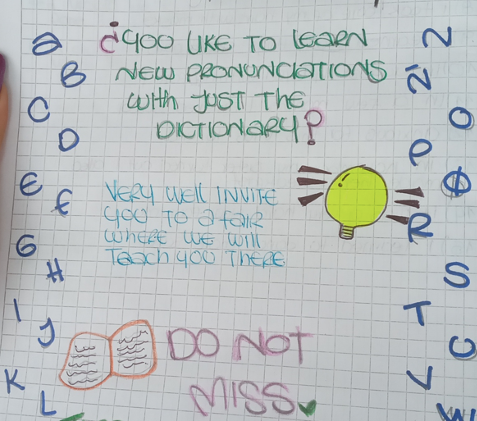 a
B
C
D
E
F
G
H
I
J
K
L
¿YOU LIKE TO LEARN
NEW PRONUNCIATIONS
WITH JUST THE
DICTIONARY?
VERY WELL INVITE
YOU TO a FAIR
WHERE WE WILL
TEACH YOU THERE
DO NOT
MISS
N
Ñ
O
P
Q
R
S
T
U
V
W